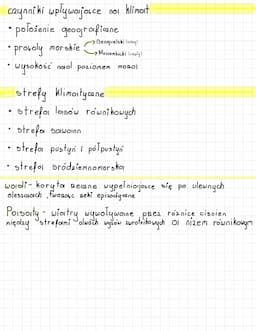 czynniki wpływające na klimat
• położenie geograficzne
• prądy morskie
→ Benguelski (zimny)
→ Mozambicki (ciepły)
• wysokość nad poziomem morza
strefy klimatyczne
• strefa lasów równikowych
• strefa sawann
• strefa pustyń i półpustyń
• strefa śródziemnomorska
wadi - koryta rzeczne wypełniające się po ulewnych
deszczach, tworząc rzeki epizodyczne
Pasaty - wiatry wywoływane przez różnice ciśnień
między strefami dwóch wyżów zwrotnikowych a niżem równikowym